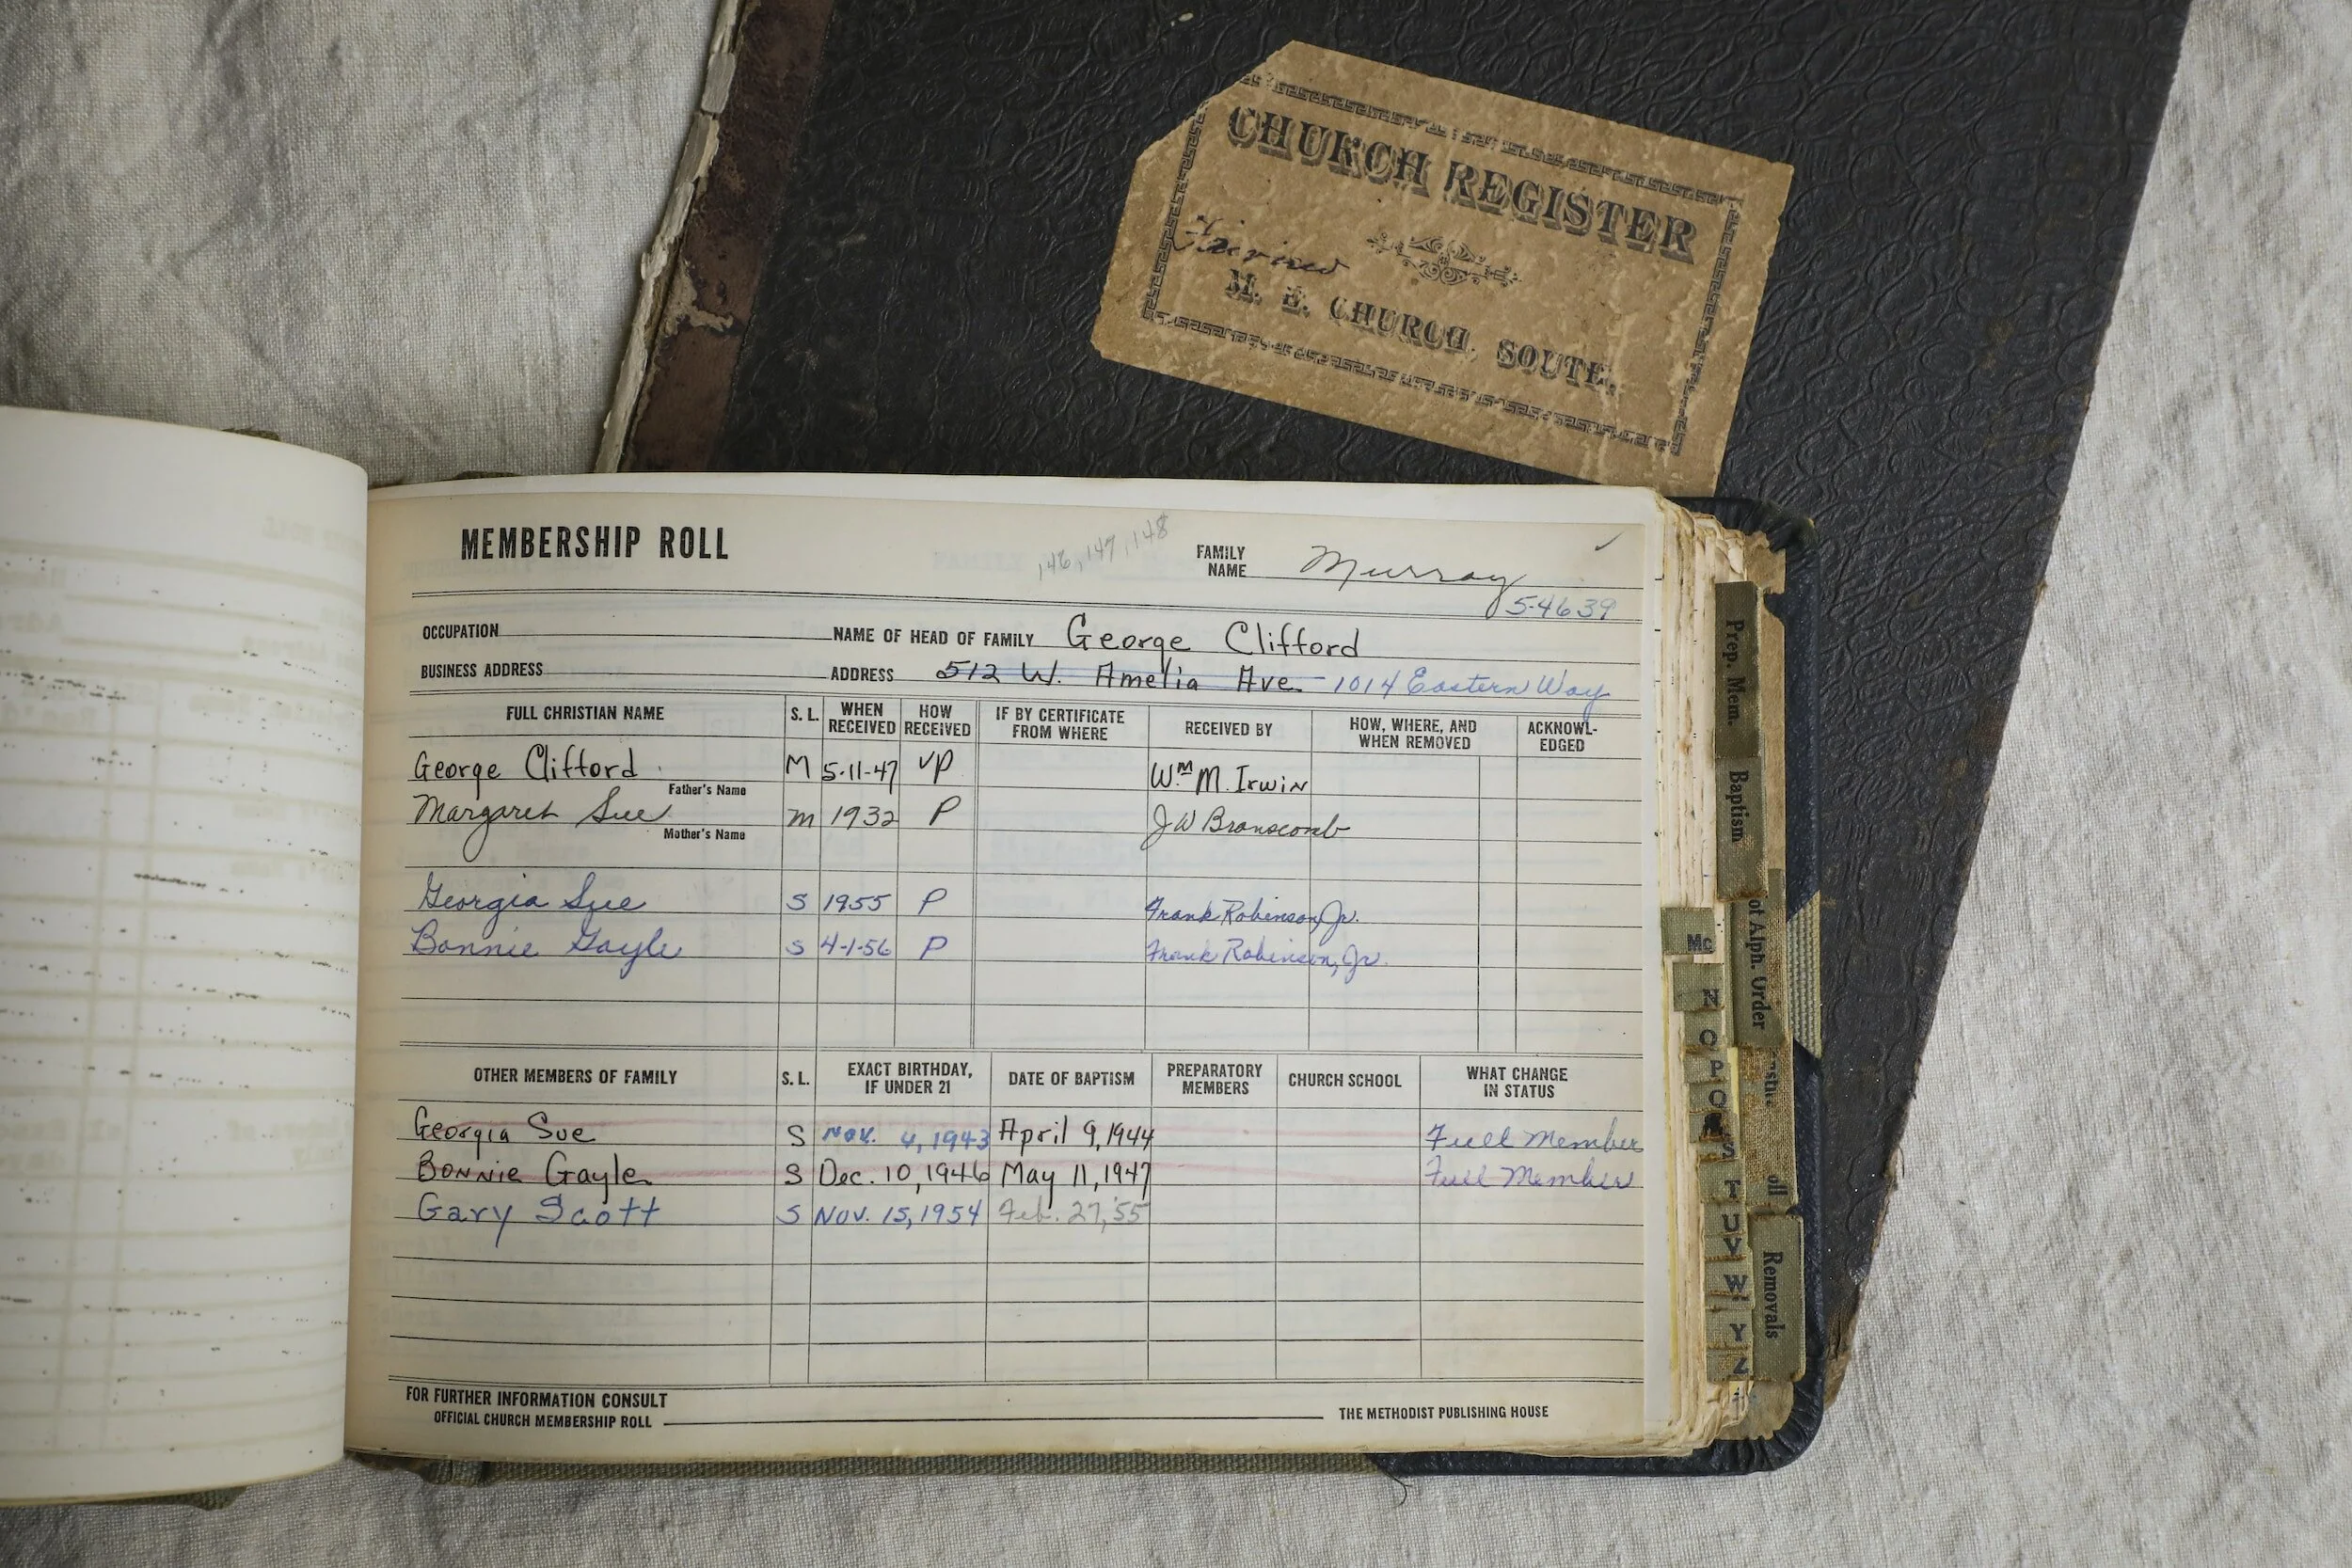 CHURCH REGISTER
M. E. CHURCH, SOUTH,
MEMBERSHIP ROLL
146, 147, 148
FAMILY NAME Murray
5-4639
OCCUPATION NAME OF HEAD OF FAMILY George Clifford
BUSINESS ADDRESS ADDRESS 512 W. Amelia Ave. 1014 Eastern Way
FULL CHRISTIAN NAME S. L. WHEN RECEIVED HOW RECEIVED IF BY CERTIFICATE FROM WHERE RECEIVED BY HOW, WHERE, AND WHEN REMOVED ACKNOWL-EDGED
George Clifford M 5-11-47 VP Wm M. Irwin
Father's Name
Margaret Sue M 1932 P J W Branscomb
Mother's Name
Georgia Sue S 1955 P Frank Robinson, Jr.
Bonnie Gayle S 4-1-56 P Frank Robinson, Jr.
OTHER MEMBERS OF FAMILY S. L. EXACT BIRTHDAY, IF UNDER 21 DATE OF BAPTISM PREPARATORY MEMBERS CHURCH SCHOOL WHAT CHANGE IN STATUS
Georgia Sue S Nov. 4, 1943 April 9, 1944 Full Member
Bonnie Gayle S Dec. 10, 1946 May 11, 1947 Full Member
Gary Scott S Nov. 15, 1954 Feb. 27, '55
FOR FURTHER INFORMATION CONSULT
OFFICIAL CHURCH MEMBERSHIP ROLL THE METHODIST PUBLISHING HOUSE
Prep. Mem.
Baptism
Alph. Order
Removals
Mc
N
O
P
Q
S
T
U
V
W
Y
Z